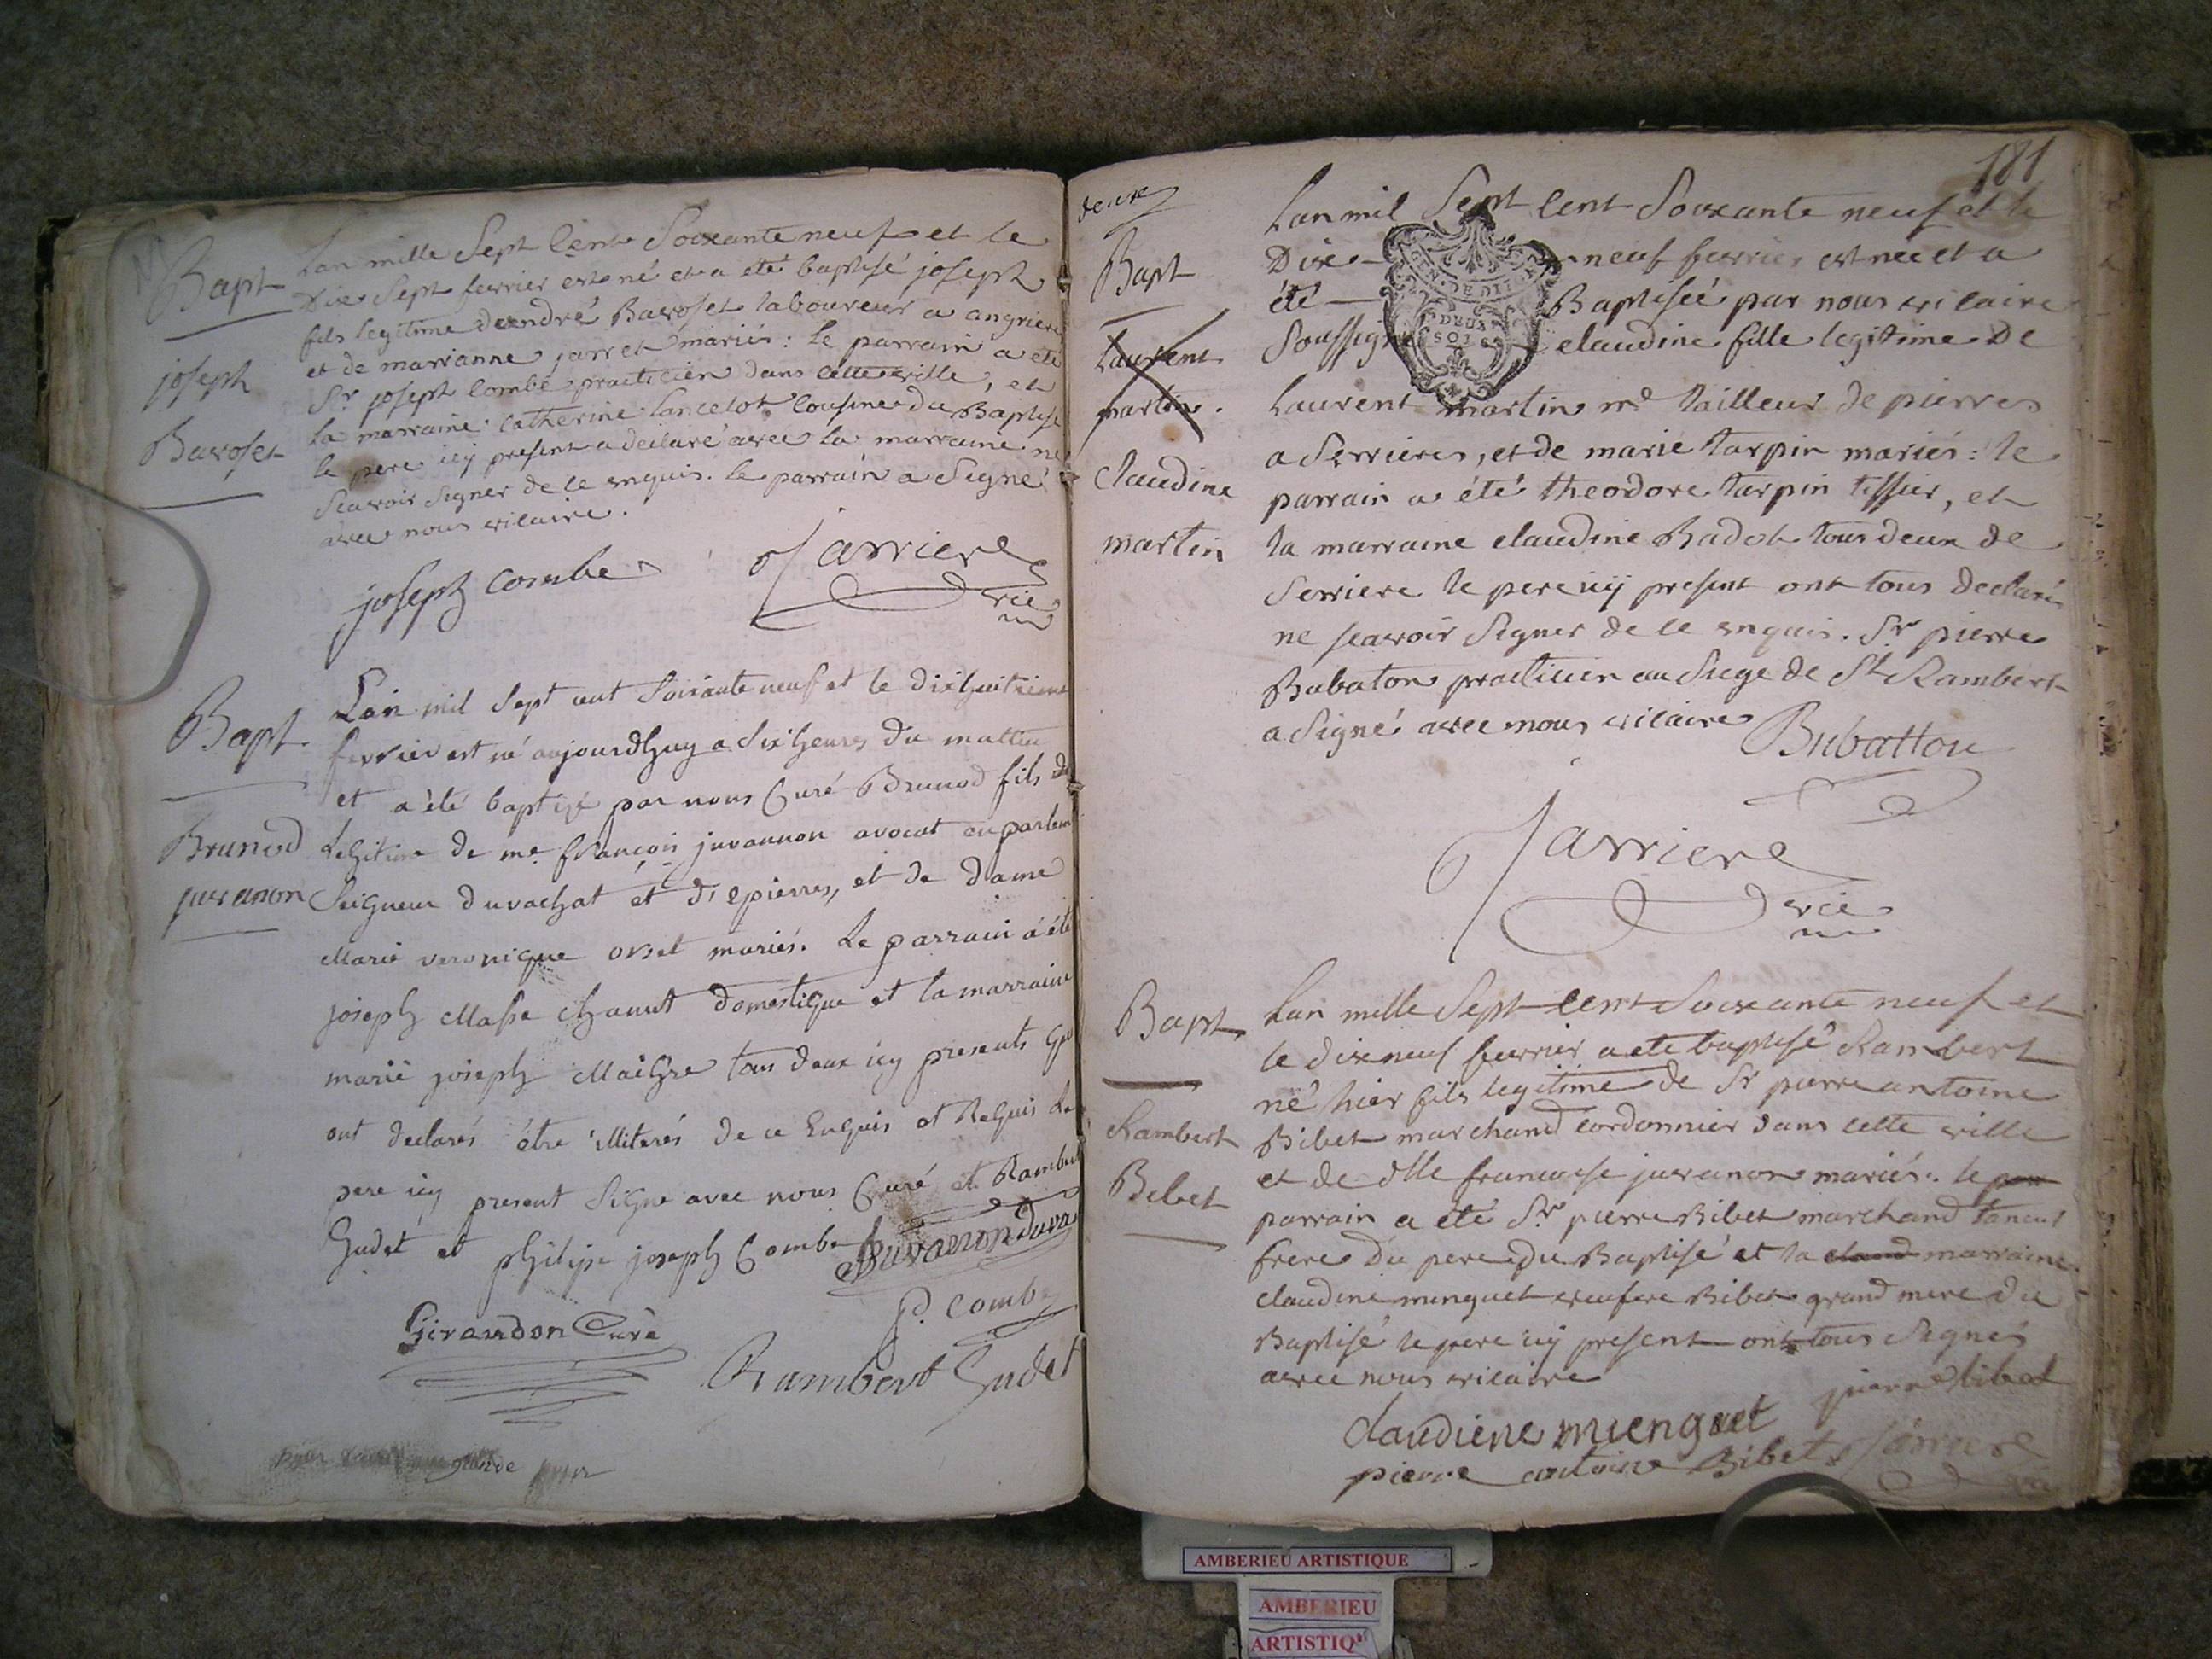 Bapt
joseph
Bavoset
Lan mille Sept Cent Soixante neuf et le
Dix Sept fevrier est né et a été baptisé joseph
fils legitime dandré Bavoset laboureur a angriere
et de marianne jarret mariés: le parrain a eté
Sr joseph Combe practicien dans cette ville, et
la marraine Catherine Lancelot Cousine du Baptisé
le pere icy present a declaré avec la marraine ne
Scavoir Signer de ce enquis. le parrain a Signé
avec nous vicaire.
joseph combe
Sarriere
vic
Bapt
Brunod
juvanon
L'an mil Sept cent Soixante neuf et le dixhuitieme
fevrier est né aujourdhuy a Six heures du matin
et a été baptisé par nous Curé Brunod fils
Legitime de me françois juvannon avocat au parlem
Seigneur duvachat et d'epierres, et de dame
Marie veronique orset mariés. Le parrain a été
joseph Masse chanut domestique et la marraine
marie joseph Maighre tous deux icy presents qui
ont declarés étre illiterés de ce Enquis et Requis Le
pere icy present Signe avec nous Curé et Rambert
Gudet et philipe joseph Combe
juvanon duva
Giraudon Curé
P. combe
Rambert Gudet
181
deuxe
Bapt
Laurent
martin.
Claudine
martin
Lan mil Sept Cent Soixante neuf et le
Dixe - neuf fevrier est née et a
été - Baptisée par nous vicaire
Soussigné - claudine fille legitime De
GEN. DE DI
DEUX
SOLS
Laurent martin md tailleur de pierres
a Serrieres, et de marie tarpin mariés: le
parrain a été theodore tarpin tissier, et
la marraine claudine Badot tous deux de
Serriere le pere icy present ont tous declarés
ne scavoir Signer de ce enquis. Sr pierre
Bubaton practicien au Siege de St Rambert
a Signé avec nous vicaire
Bubatton
Sarriere
vic
Bapt
Rambert
Bibet
Lan mille Sept Cent Soixante neuf et
le dixneuf fevrier a eté baptisé Rambert
né hier fils legitime de Sr pierre antoine
Bibet marchand cordonnier dans cette ville
et de dlle francoise juvanon mariés. le par
parrain a été Sr pierre Bibet marchand taneur
frere du pere du Baptisé et la claud marraine
claudine minguet veufere Bibet grand mere du
Baptisé le pere icy present ont tous Signés
avec nous vicaire
pierre bibet
claudiene mienguet
pierre antoine Bibet Sarriere
AMBERIEU ARTISTIQUE
AMBERIEU
ARTISTIQ